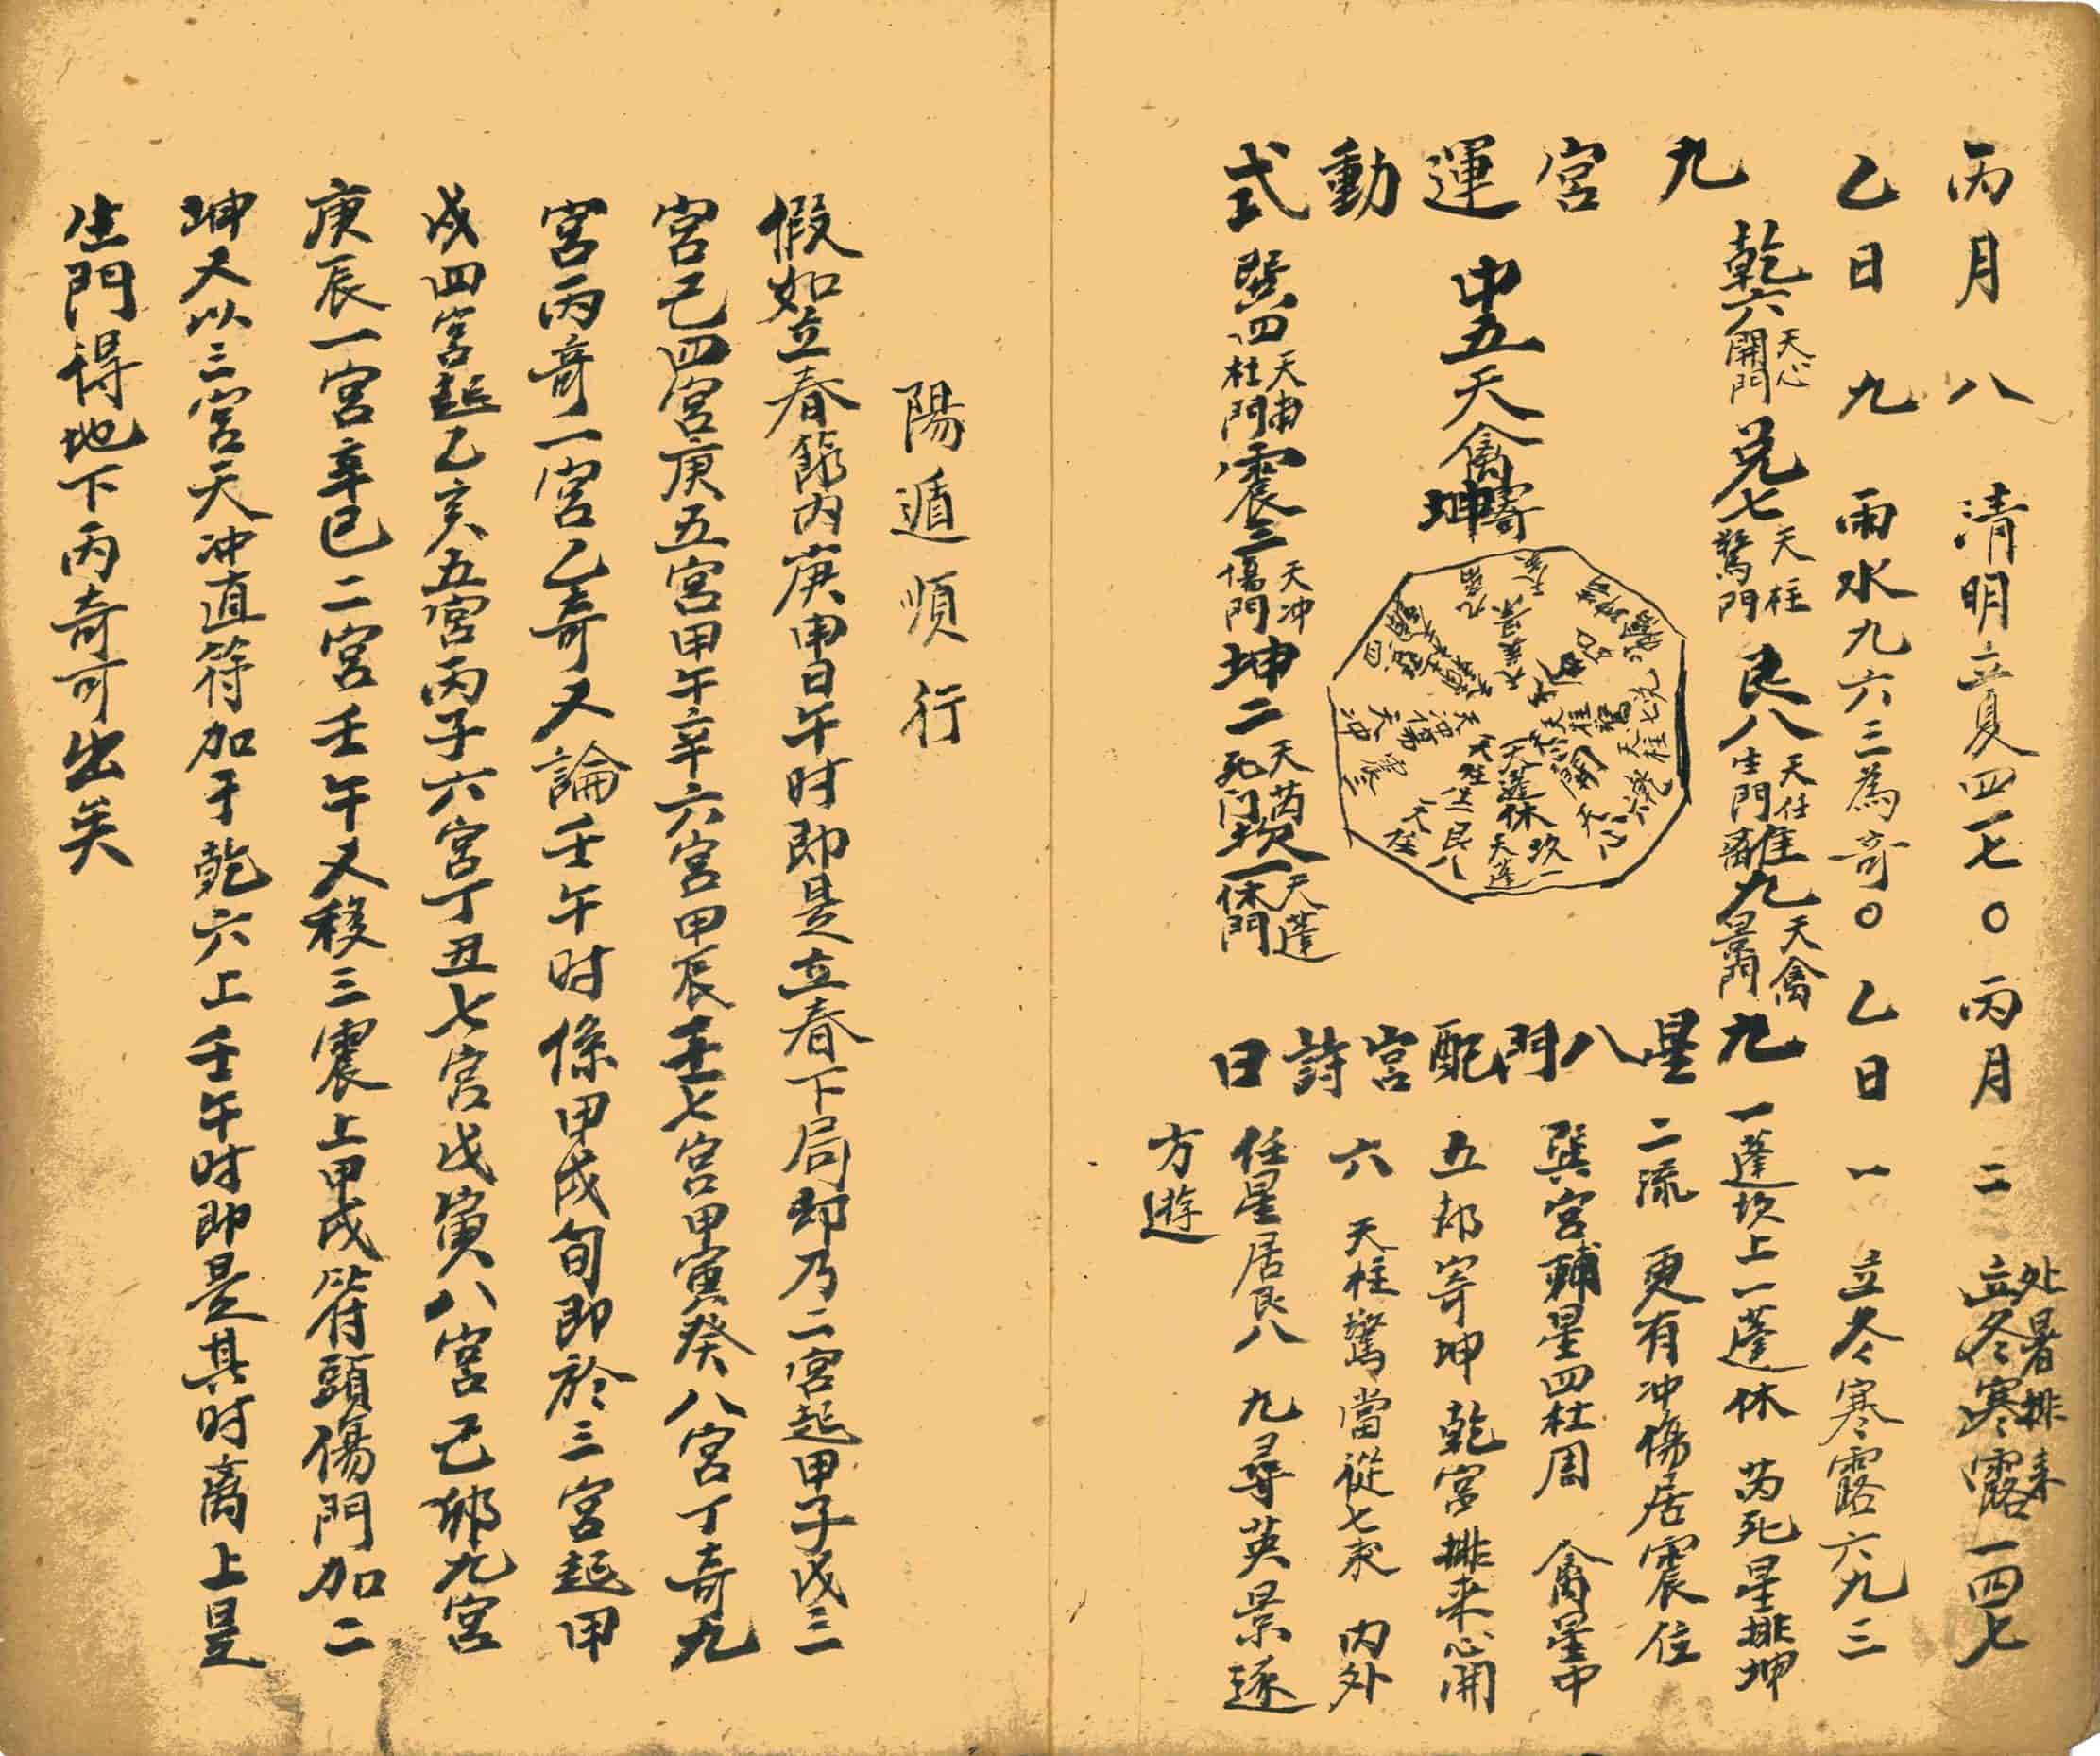 丙月八 清明立夏四一七〇丙月二 处暑排来 立冬寒露一四七
乙日九 雨水九六三為奇〇乙日一 立冬寒露六九三
九宮運動式
乾六 天心 開門 兌七 天柱 驚門 艮八 天任 生門 離九 天禽 景門
中五天禽寄坤
巽四 杜門 震三 天冲 傷門 坤二 天芮 死门 坎一 天蓬 休門
九星八門配宮詩曰
一蓬坎上一蓬休 芮死星排坤
二流 更有冲傷居震位
巽宮輔星四杜周 禽星中
五郎寄坤 乾宮排來心開
六 天柱驚當從七 內外
任星居艮八 九尋英景逐
方遊
陽遁順行
假如立春節內庚申日午时即是立春下局却乃二宮起甲子戊三
宮己四宮庚五宮甲午辛六宮甲辰壬七宮甲寅癸八宮丁奇九
宮丙奇一宮乙奇又論壬午时係甲戌旬即於三宮起甲
戌四宮起乙亥五宮丙子六宮丁丑七宮戊寅八宮己卯九宮
庚辰一宮辛巳二宮壬午又移三震上甲戌符頭傷門加二
坤又以三宮天冲直符加于乾六上壬午时即是其时离上是
生門得地下丙奇可出矣